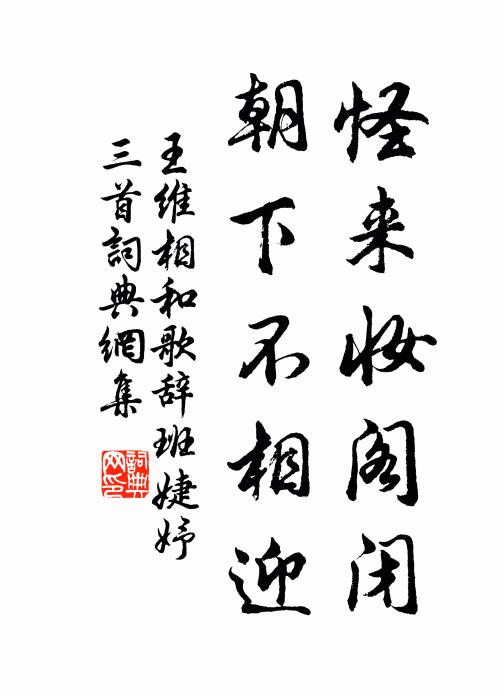 怪来妆阁闭
朝下不相迎
王维相和歌辞班婕妤
三首詞典網集
詞典
网印